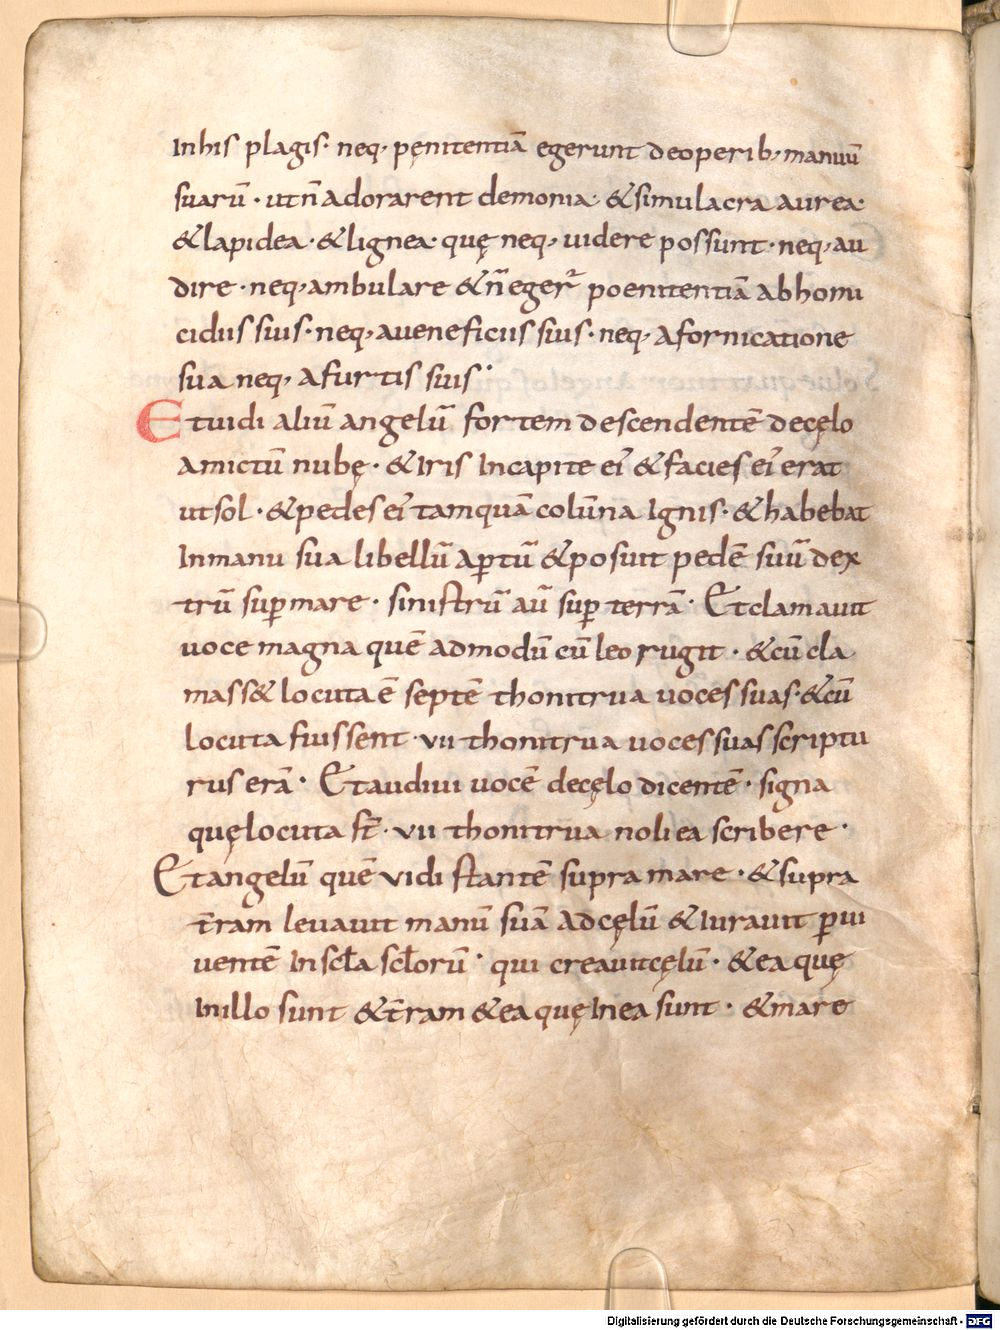 Inhis plagis· neq, pęnitentiā egerunt deoperib, manuū
suarū · utn̄ adorarent demonia· &simulacra aurea·
&lapidea·&lignea· quę neq, uidere possunt·neq, au
dire·neq, ambulare &n̄ eger̄ poenitentiā abhomi
cidiis suis·neq, aueneficiis suis·neq, afornicatione
sua neq, afurtis suis·
Etuidi aliū angelū fortem descendentē decęlo
amictū nubę· &Iris Incapite ei' &facies ei' erat
utsol·&pedes ei' tamquā colūna Ignis·&habebat
Inmanu sua libellū aꝑtū &posuit pedē suū dex
trū suꝑmare· sinistrū aū suꝑ terrā· Etclamauit
uoce magna quēadmodū cū leo rugit·&cū cla
mass& locuta ē septē thonitrua uoces suas·&cū
locuta fuissent·vii thonitrua uoces suas scriptu
rus erā· Etaudiui uocē decęlo dicentē· signa
quę locuta st̄·vii thonitrua noli ea scribere·
Etangelū quē vidi stantē supra mare·&supra
t̄ram leuauit manū suā adcęlū &Iurauit ꝑui
uentē Inscła scłorū· qui creauitcęlū·&ea quę
Inillo sunt &t̄ram &ea quę Inea sunt· &mare
Digitalisierung gefördert durch die Deutsche Forschungsgemeinschaft - DFG